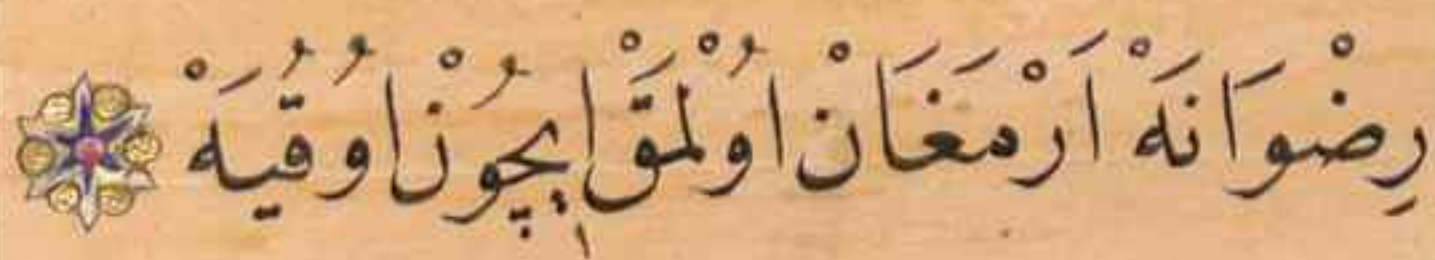 رِضْوَانَهْ اَرْمَغَانْ اُوْلْمَقْ اِيچُوْنْ اوُقُيَهْ